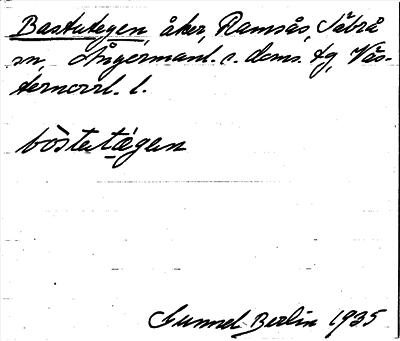 Bastutegen, åker, Ramsås, Säbrå
sn, Ångermanl. s. doms. tg, Väs-
ternorrl. l.
bòstutǽgen
Gunnel Berlin 1935